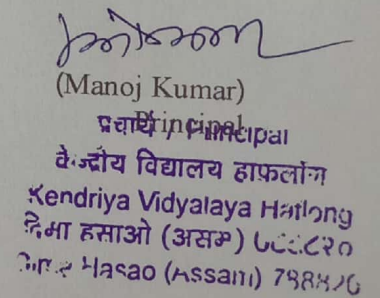 (Manoj Kumar)
Principal
प्रचार्य / Principal
केन्द्रीय विद्यालय हाफलांग
Kendriya Vidyalaya Haflong
दिमा हसाओ (असम)
Hasao (Assam)